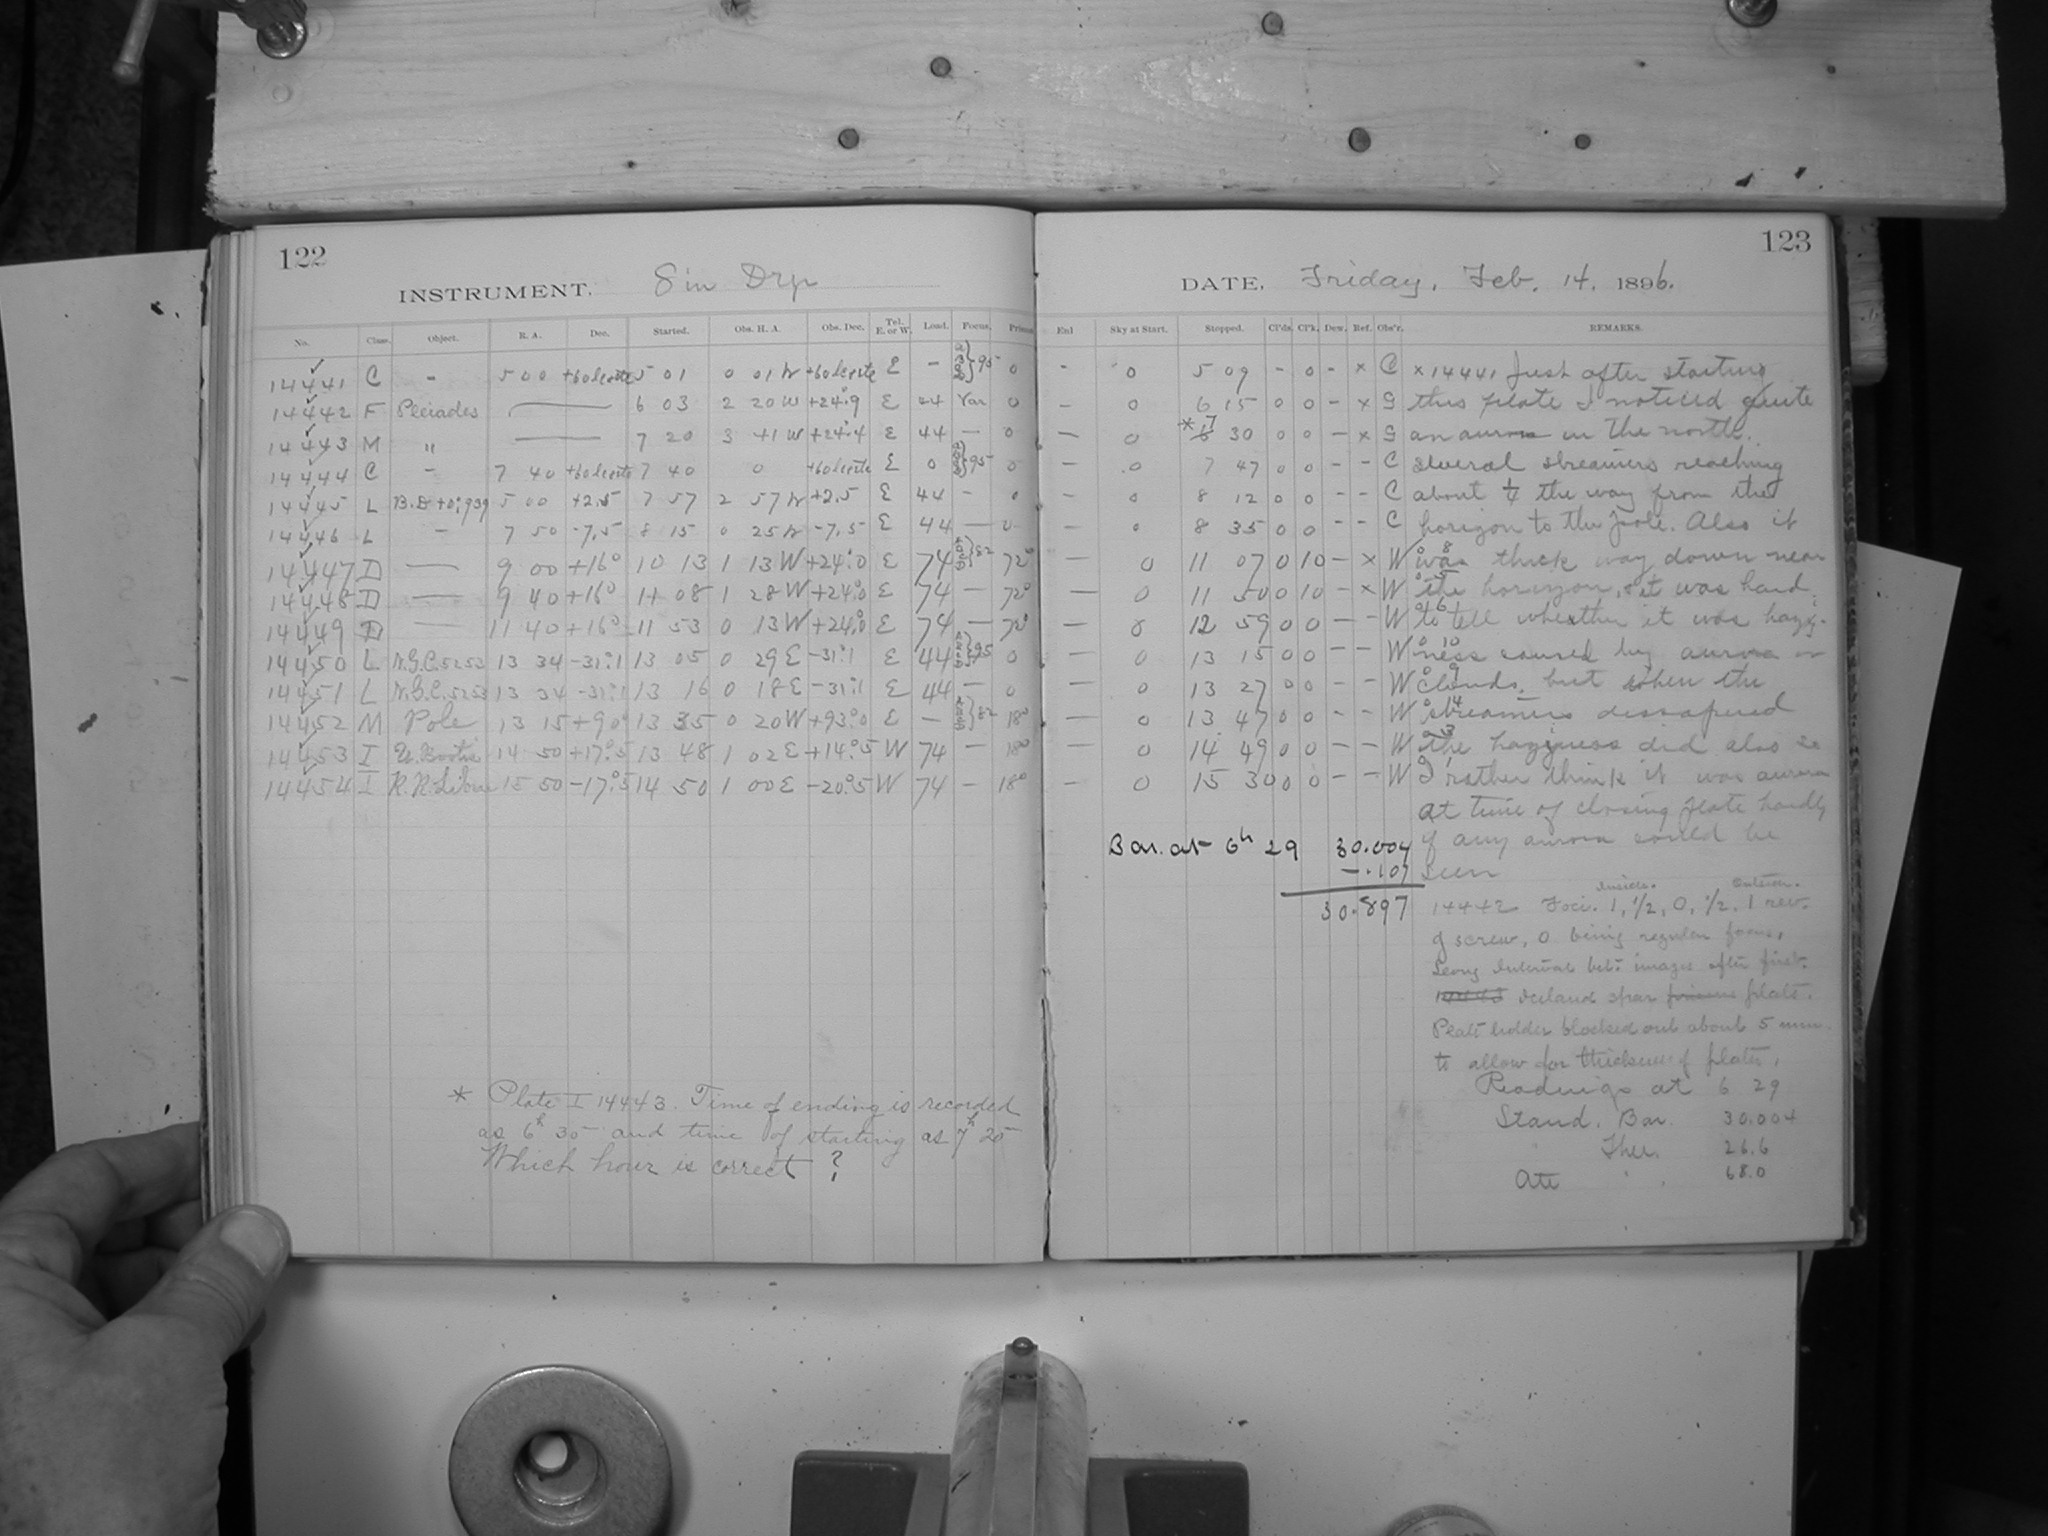 122
INSTRUMENT. 8 in Drp
No. Class. Object. R. A. Dec. Started. Obs. H. A. Obs. Dec. Tel. E. or W. Load. Focus. Prism
14441 C - 5 00 5 01 0 01 W E - 95 0
14442 F Pleiades — 6 03 2 20 W +24°.9 E 44 Var 0
14443 M " — 7 20 3 41 W +24°.4 E 44 — 0
14444 C - 7 40 7 40 0 E 0 95 0
14445 L 5 00 +2.5 7 57 2 57 W +2.5 E 44 - 0
14446 L - 7 50 -7.5 8 15 0 25 W -7.5 E 44 — 0
14447 D — 9 00 +16° 10 13 1 13 W +24°.0 E 74 82 72°
14448 D — 9 40 +16° 11 08 1 28 W +24°.0 E 74 — 72°
14449 D — 11 40 +16° 11 53 0 13 W +24°.0 E 74 — 72°
14450 L N.G.C. 5253 13 34 -31°.1 13 05 0 29 E -31°.1 E 44 95 0
14451 L N.G.C. 5253 13 34 -31°.1 13 16 0 18 E -31°.1 E 44 — 0
14452 M Pole 13 15 +90° 13 35 0 20 W +93°.0 E - 82 18°
14453 I U. Bootis 14 50 +17°.5 13 48 1 02 E +14°.5 W 74 - 18°
14454 I 15 50 -17°.5 14 50 1 00 E -20°.5 W 74 - 18°
* Plate I 14443. Time of ending is recorded
as 6h 30 and time of starting as 7h 20
Which hour is correct ?
123
DATE, Friday, Feb. 14, 1896.
Enl Sky at Start. Stopped. Cl'ds. Cl'k. Dew. Ref. Obs'r. REMARKS.
- 0 5 09 - 0 - x C x 14441 Just after starting
- 0 6 15 0 0 - x G this plate I noticed quite
— 0 * 7 30 0 0 - x G an aurora in the north.
— 0 7 47 0 0 - - C several streamers reaching
- 0 8 12 0 0 - - C about 1/4 the way from the
- 0 8 35 0 0 - - C horizon to the pole. Also it
— 0 11 07 0 10 - x W was thick way down near
— 0 11 50 0 10 - x W the horizon, & it was hard
— 0 12 59 0 0 - - W to tell whether it was hazi-
— 0 13 15 0 0 - - W ness caused by aurora or
— 0 13 27 0 0 - - W clouds, but when the
— 0 13 47 0 0 - - W streamers dissapered
— 0 14 49 0 0 - - W the haziness did also so
— 0 15 30 0 0 - - W I rather think it was aurora
At time of closing plate hardly
if any aurora could be
seen
Bar. at 6h 29 30.004
-.107
30.897
Inside.
14442 Foci. 1, 1/2, 0, 1/2, 1 rev.
of screw, 0 being regular focus,
Long interval bet. images after first.
Iceland spar plate.
Plate holder blocked out about 5 mm.
to allow for thickness of plate.
Readings at 6 29
Stand. Bar. 30.004
Ther. 26.6
Att 68.0